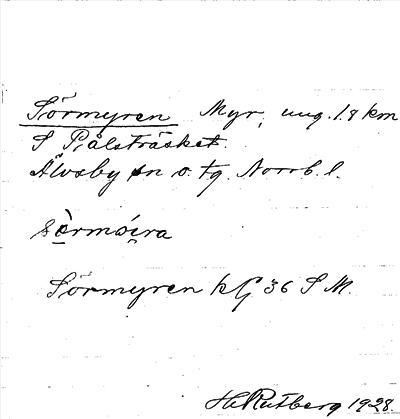 Sörmyren Myr, ung. 1.8 km
S Pålsträsket.
Älvsby sn o. tg. Norrb. l.
Sörmyren kG 36 S M.
H Rutberg 1928.